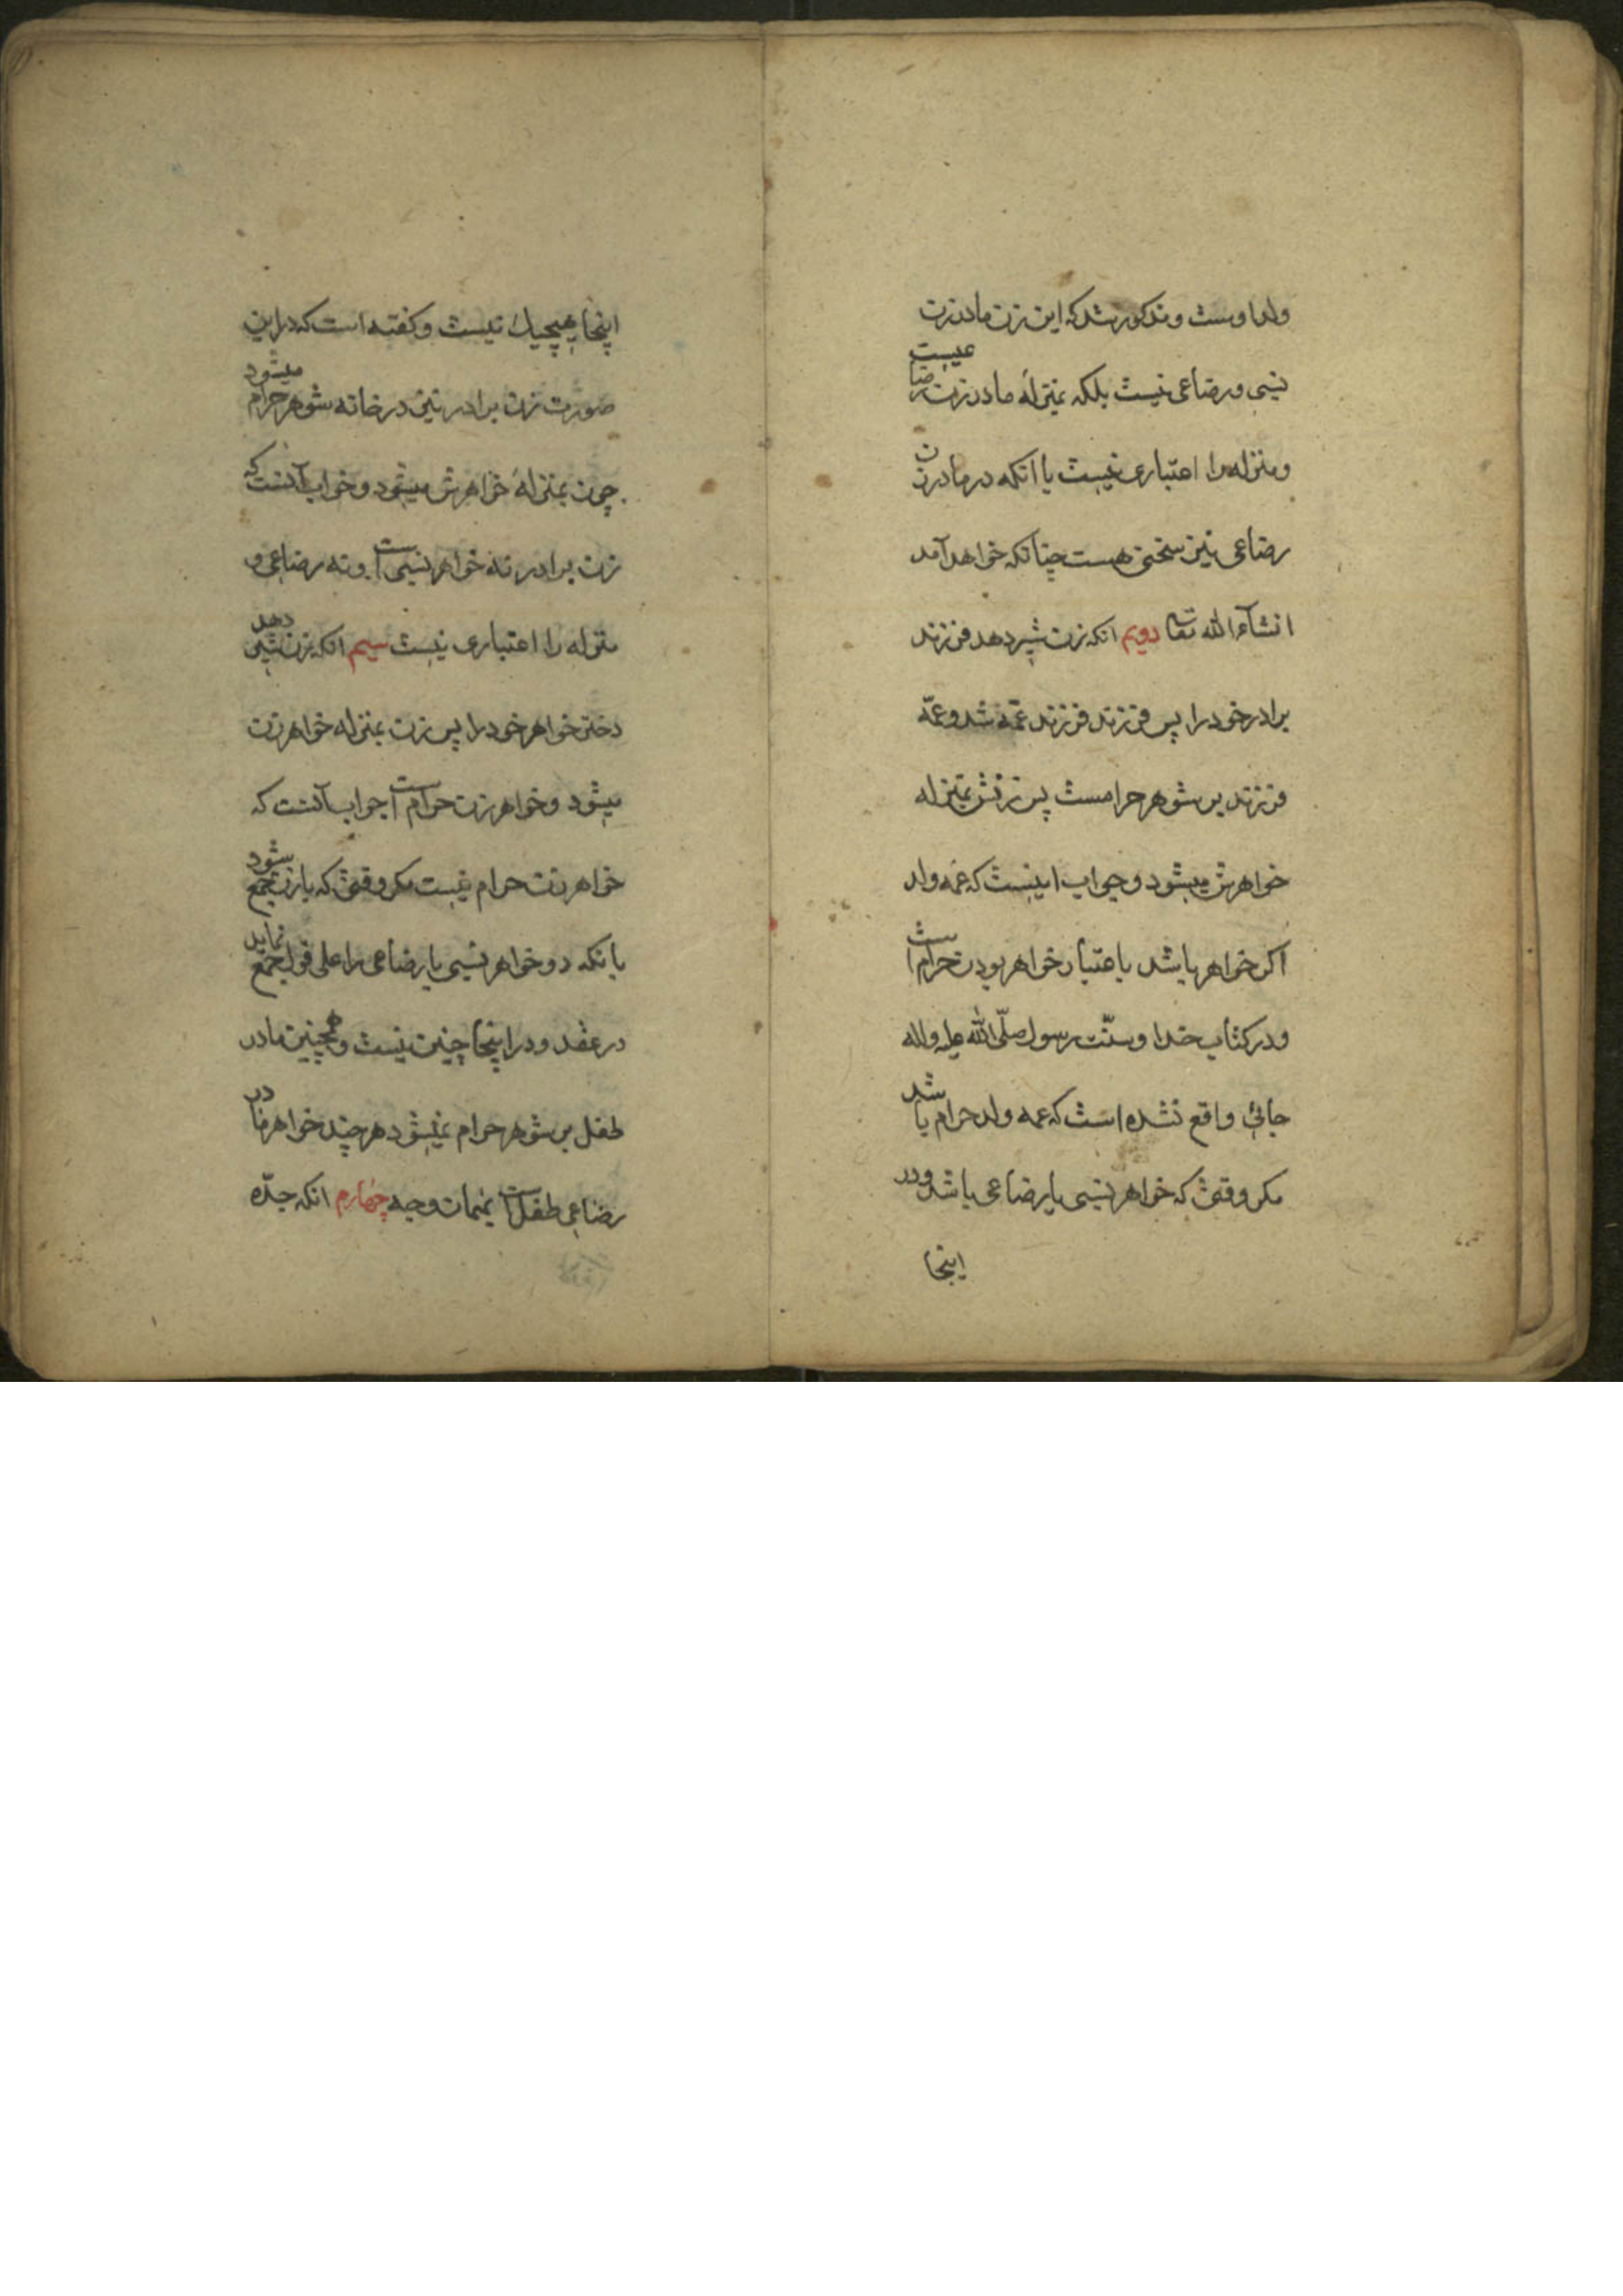 ولد اوست و مذکور شد که این زن مادر زن
نسبی و رضاعی نیست بلکه بمنزلهٔ مادر زن رضاعیست
و منزله را اعتباری نیست با آنکه در مادر زن
رضاعی نیز سخنی هست چنانکه خواهد آمد
انشاء الله تعالی دویم انکه زن شیر دهد فرزند
برادر خود را پس فرزند فرزند عمّه شد و عمّه
فرزند بر شوهر حرامست پس زنش بمنزله
خواهرش میشود و جواب اینست که عمه ولد
اکر خواهر باشد باعتبار خواهر بودن حرام است
و در کتاب خدا و سنّت رسول صلّی الله علیه و اله
جائی واقع نشده است که عمه ولد حرام باشد
مکر وقتی که خواهر نسبی یا رضاعی باشد و در
اینجا
اینجا هیچیک نیست و کفته است که در این
صورت زن برادر نیز در خانه شوهر حرام میشود
چون بمنزلهٔ خواهرش میشود و جواب آنست که
زن برادر نه خواهر نسبی است و نه رضاعی و
منزله را اعتباری نیست سیم انکه زن شیر دهد
دختر خواهر خود را پس زن بمنزله خواهر زن
میشود و خواهر زن حرام است جواب آنست که
خواهر زن حرام نیست مکر وقتی که با زن جمع شود
بانکه دو خواهر نسبی یا رضاعی را علی قول جمع نماید
در عقد و در اینجا چنین نیست و همچنین مادر
طفل بر شوهر حرام نمیشود هر چند خواهر مادر
رضاعی طفل است بهمان وجه چهارم انکه جدّه